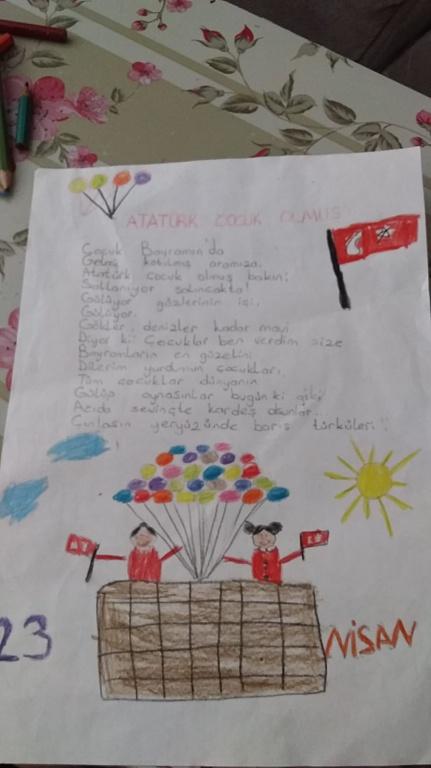 ATATÜRK ÇOCUK OLMUŞ
Çocuk Bayramın'da
Gelmiş katılmış aramıza.
Atatürk çocuk olmuş bakın;
Sallanıyor salıncakta!
Gülüyor gözlerinin içi,
Gülüyor.
Gökler, denizler kadar mavi
Diyor ki: Çocuklar ben verdim size
Bayramların en güzelini
Dilerim yurdumun çocukları,
Tüm çocuklar dünyanın
Gülüp oynasınlar bugünki gibi
Acıda sevinçte kardeş olsunlar...
Çınlasın yeryüzünde barış türküleri!
23 NİSAN